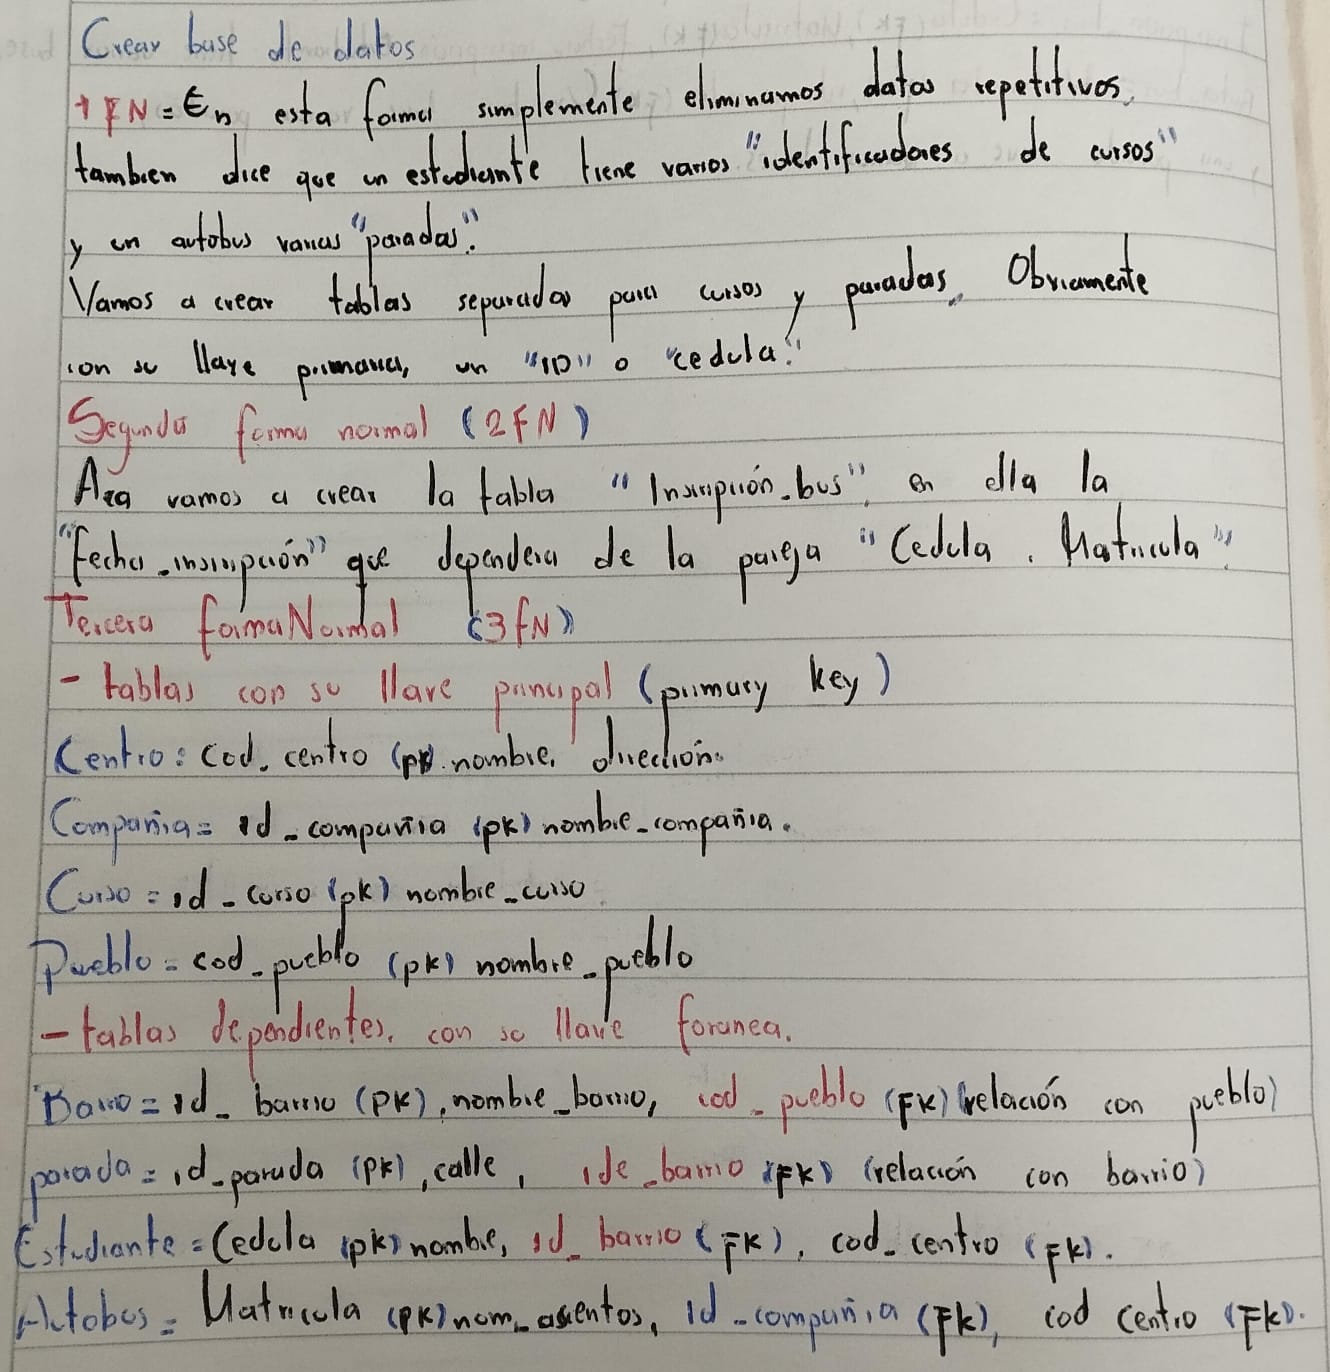 Crear base de datos
1FN = En esta forma simplemente eliminamos datos repetitivos,
tambien dice que un estudiante tiene varios "identificadores de cursos"
y un autobus varias "paradas".
Vamos a crear tablas separadas para cursos y paradas. Obviamente
con su llave primaria, un "ID" o "cedula".
Segunda forma normal (2FN)
vamos a crear la tabla "Inscripción_bus", en ella la
"fecha_inscripción" que dependera de la pareja "Cedula, Matricula"
Tercera forma Normal (3FN)
- tablas con su llave principal (primary key)
Centro: Cod. centro (pk). nombre, dirección.
Compañia = id_compañia (pk) nombre_compañia.
Curso = id_curso (pk) nombre_curso
Pueblo = cod_pueblo (pk) nombre_pueblo
- tablas dependientes, con su llave foranea.
Barrio = id_barrio (PK), nombre_barrio, cod_pueblo (FK) (relación con pueblo)
parada = id_parada (PK), calle, ide_barrio (FK) (relación con barrio)
Estudiante = Cedula (pk) nombre, id_barrio (FK), cod_centro (FK).
Autobus = Matricula (PK) num_asientos, id_compañia (Fk), cod centro (FK).